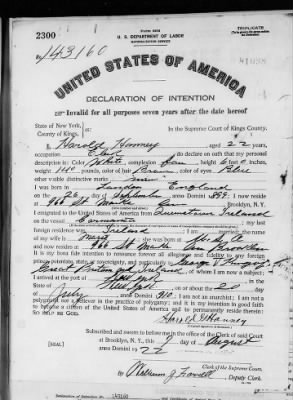 Form 2203
TRIPLICATE
U. S. DEPARTMENT OF LABOR
NATURALIZATION SERVICE
2300
No. 143160
UNITED STATES OF AMERICA
DECLARATION OF INTENTION
Invalid for all purposes seven years after the date hereof
State of New York,
County of Kings.
In the Supreme Court of Kings County.
I, Harold Hanney aged 22 years,
occupation Clerk do declare on oath that my personal
description is: Color White complexion height 5 feet 9 inches,
weight 144 pounds, color of hair Brown color of eyes Blue
other visible distinctive marks
I was born in London England
on the 26 day of September anno Domini 1899; I now reside
at 966 St Marks Ave Brooklyn, N.Y.
I emigrated to the United States of America from Queenstown Ireland
on the vessel Carmania
foreign residence was Ireland I am married
wife is she was born at
and now resides at 966 St Marks Ave Brooklyn
It is my bona fide intention to renounce forever all allegiance and fidelity to any foreign
prince, potentate, state, or sovereignty, and particularly to George V King of
Great Britain and Ireland, of whom I am now a subject;
I arrived at the port of New York
State of New York on or about the 20 day
of July anno Domini 1910; I am not an anarchist; I am not a
polygamist nor a believer in the practice of polygamy; and it is my intention in good faith
to become a citizen of the United States of America and to permanently reside therein:
SO HELP ME GOD.
Harold Hanney
Subscribed and sworn to before me in the office of the Clerk of said Court
at Brooklyn, N. Y., this day of August
[SEAL]
anno Domini 1922
Clerk of the Supreme Court.
By Deputy Clerk.
143160